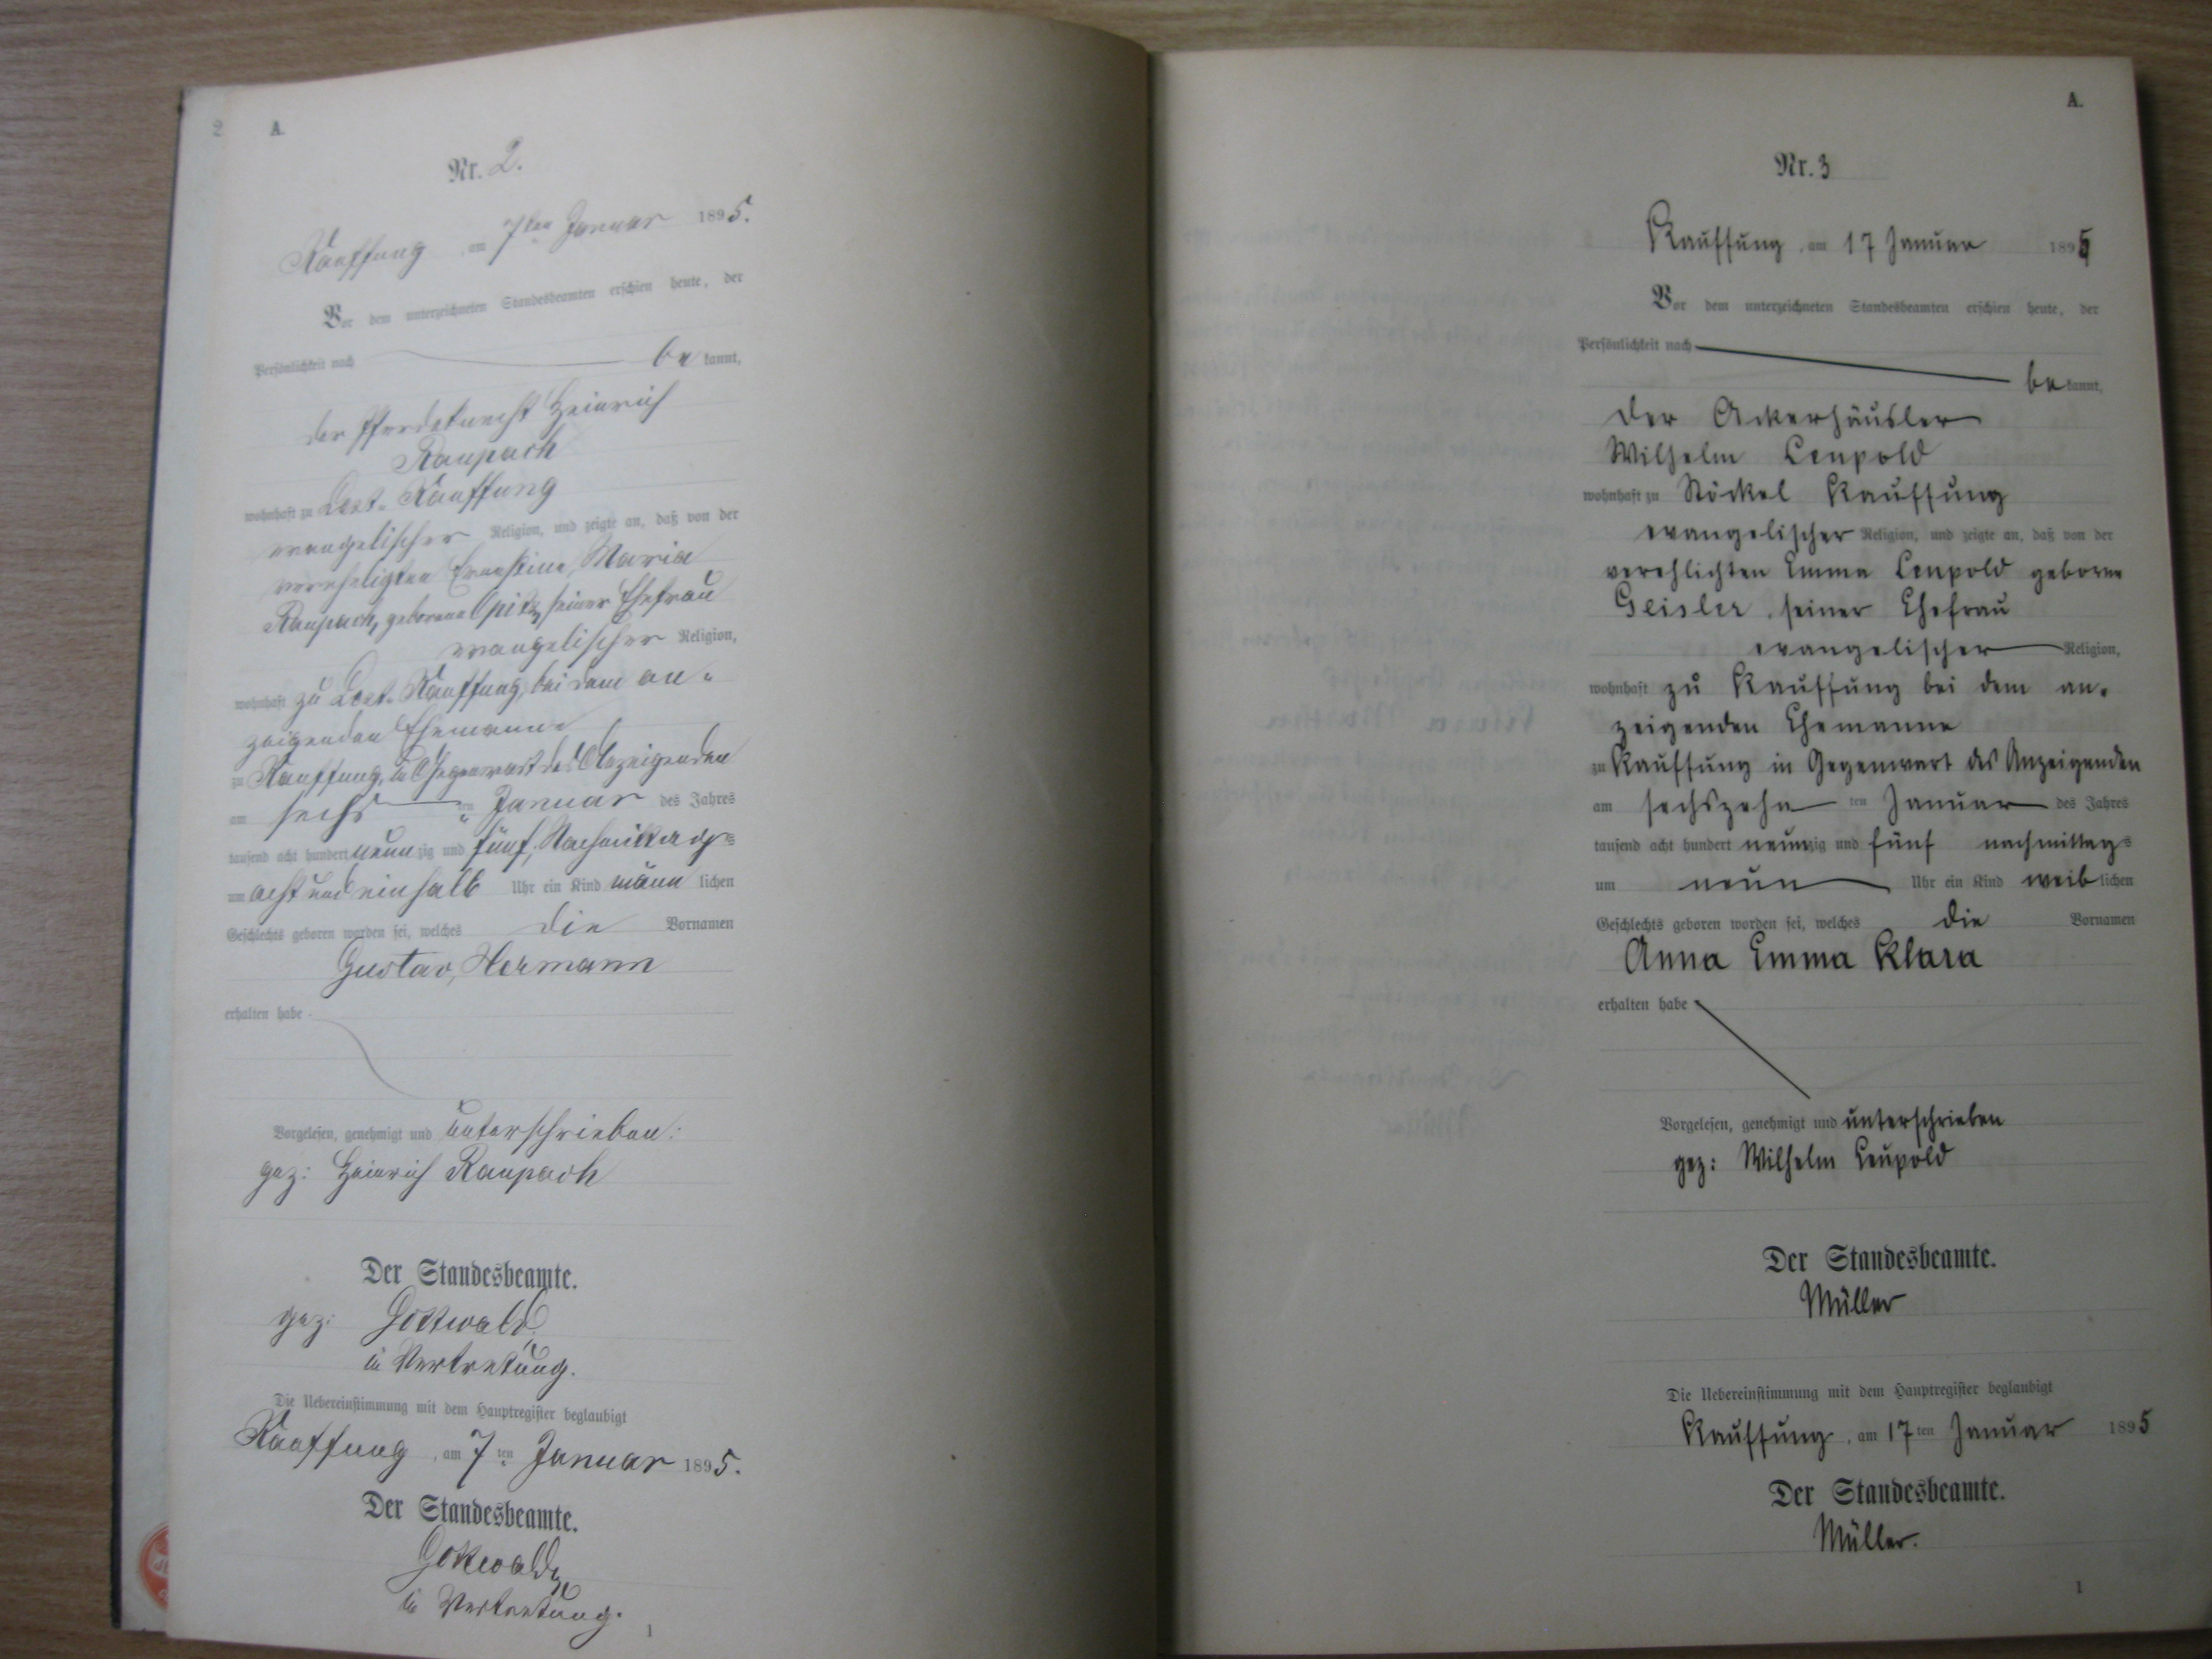 2
A.
Nr. 2.
Kauffung, am 7ten Januar 1895.
Vor dem unterzeichneten Standesbeamten erschien heute, der
Persönlichkeit nach
be kannt,
der Pferdeknecht Heinrich
Raupach
wohnhaft zu Kauffung
evangelischer Religion, und zeigte an, daß von der
vereheligten Ernestine, Maria
Raupach, geborene Opitz, seiner Ehefrau
evangelischer Religion,
wohnhaft zu Kauffung, bei dem an-
zeigenden Ehemanne
zu Kauffung, in Gegenwart des Anzeigenden
am sechs ten Januar des Jahres
tausend acht hundert neun zig und fünf, Nachmittags
um acht und einhalb Uhr ein Kind männ lichen
Geschlechts geboren worden sei, welches die Vornamen
Gustav, Hermann
erhalten habe
Vorgelesen, genehmigt und unterschrieben:
gez: Heinrich Raupach
Der Standesbeamte.
gez: Gottwald
in Vertretung.
Die Uebereinstimmung mit dem Hauptregister beglaubigt
Kauffung, am 7ten Januar 1895.
Der Standesbeamte.
Gottwald,
in Vertretung.
1
A.
Nr. 3
Kauffung, am 17 Januar 1895
Vor dem unterzeichneten Standesbeamten erschien heute, der
Persönlichkeit nach
be kannt,
der Ackerhäusler
Wilhelm Leupold
wohnhaft zu Stöckel Kauffung
evangelischer Religion, und zeigte an, daß von der
verehlichten Emma Leupold geborne
Geisler, seiner Ehefrau
evangelischer Religion,
wohnhaft zu Kauffung bei dem an-
zeigenden Ehemanne
zu Kauffung in Gegenwart des Anzeigenden
am sechszehn ten Januar des Jahres
tausend acht hundert neunzig und fünf nachmittags
um neun Uhr ein Kind weib lichen
Geschlechts geboren worden sei, welches die Vornamen
Anna Emma Klara
erhalten habe
Vorgelesen, genehmigt und unterschrieben
gez: Wilhelm Leupold
Der Standesbeamte.
Müller
Die Uebereinstimmung mit dem Hauptregister beglaubigt
Kauffung, am 17ten Januar 1895
Der Standesbeamte.
Müller.
1